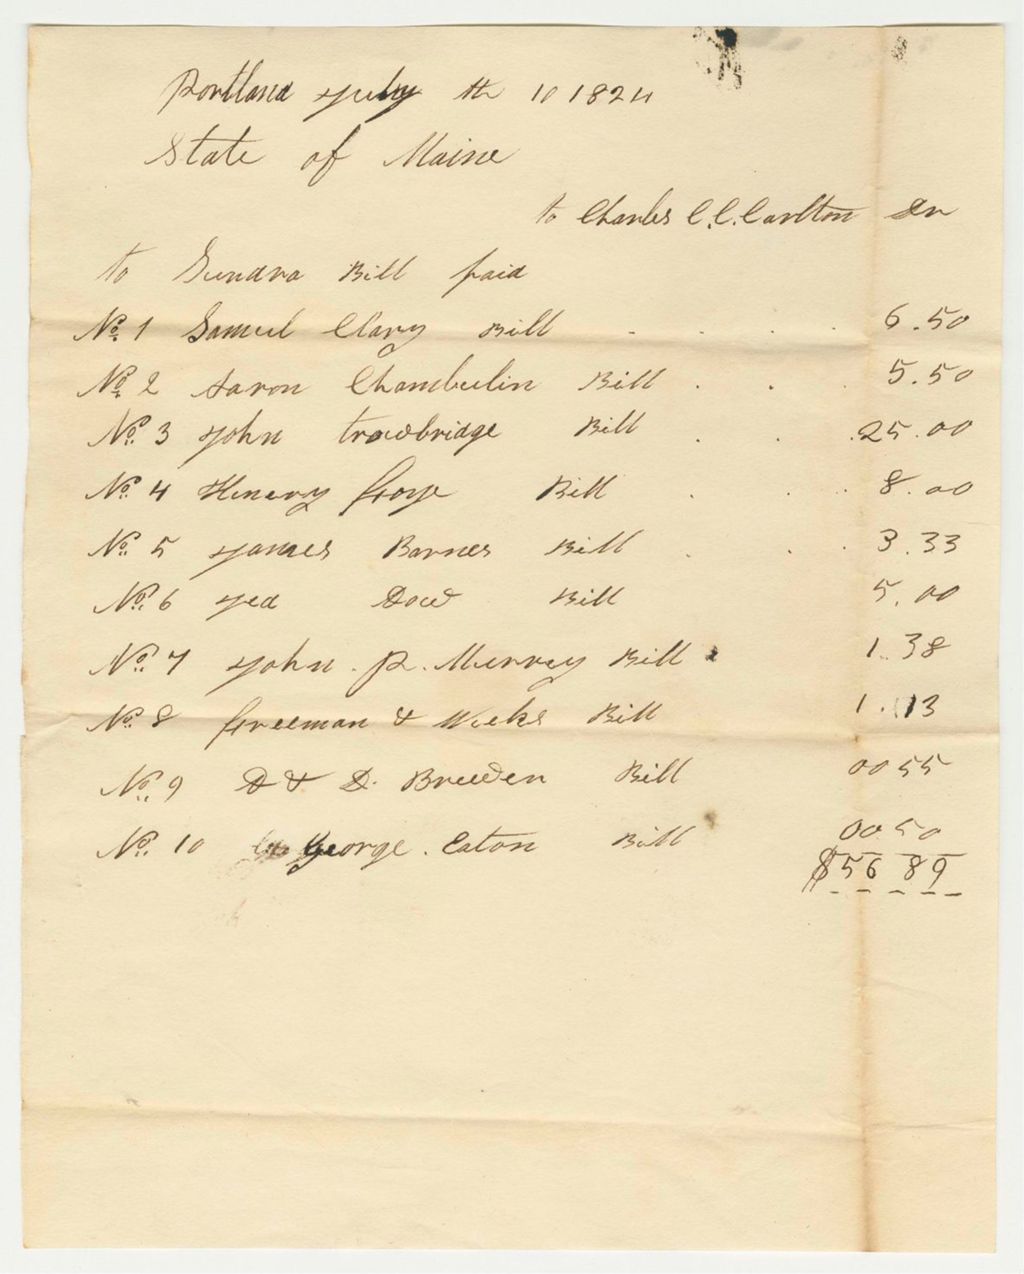 Portland July th 10 1824
State of Maine
to Charles C. C. Carlton Dr
to Sundra Bill paid
No 1 Samuel Clary Bill . . . . 6.50
No 2 Aaron Chamberlin Bill . . . 5.50
No 3 John trowbridge Bill . . . 25.00
No 4 Henery Bill . . . 8.00
No 5 James Barnes Bill . . . 3.33
No 6 Jed Dow Bill 5.00
No 7 John P. Murray Bill 1.38
No 8 freeman & Weeks Bill 1.13
No 9 D & D. Breeden Bill 00 55
No 10 George. Eaton Bill 00.50
$56 89